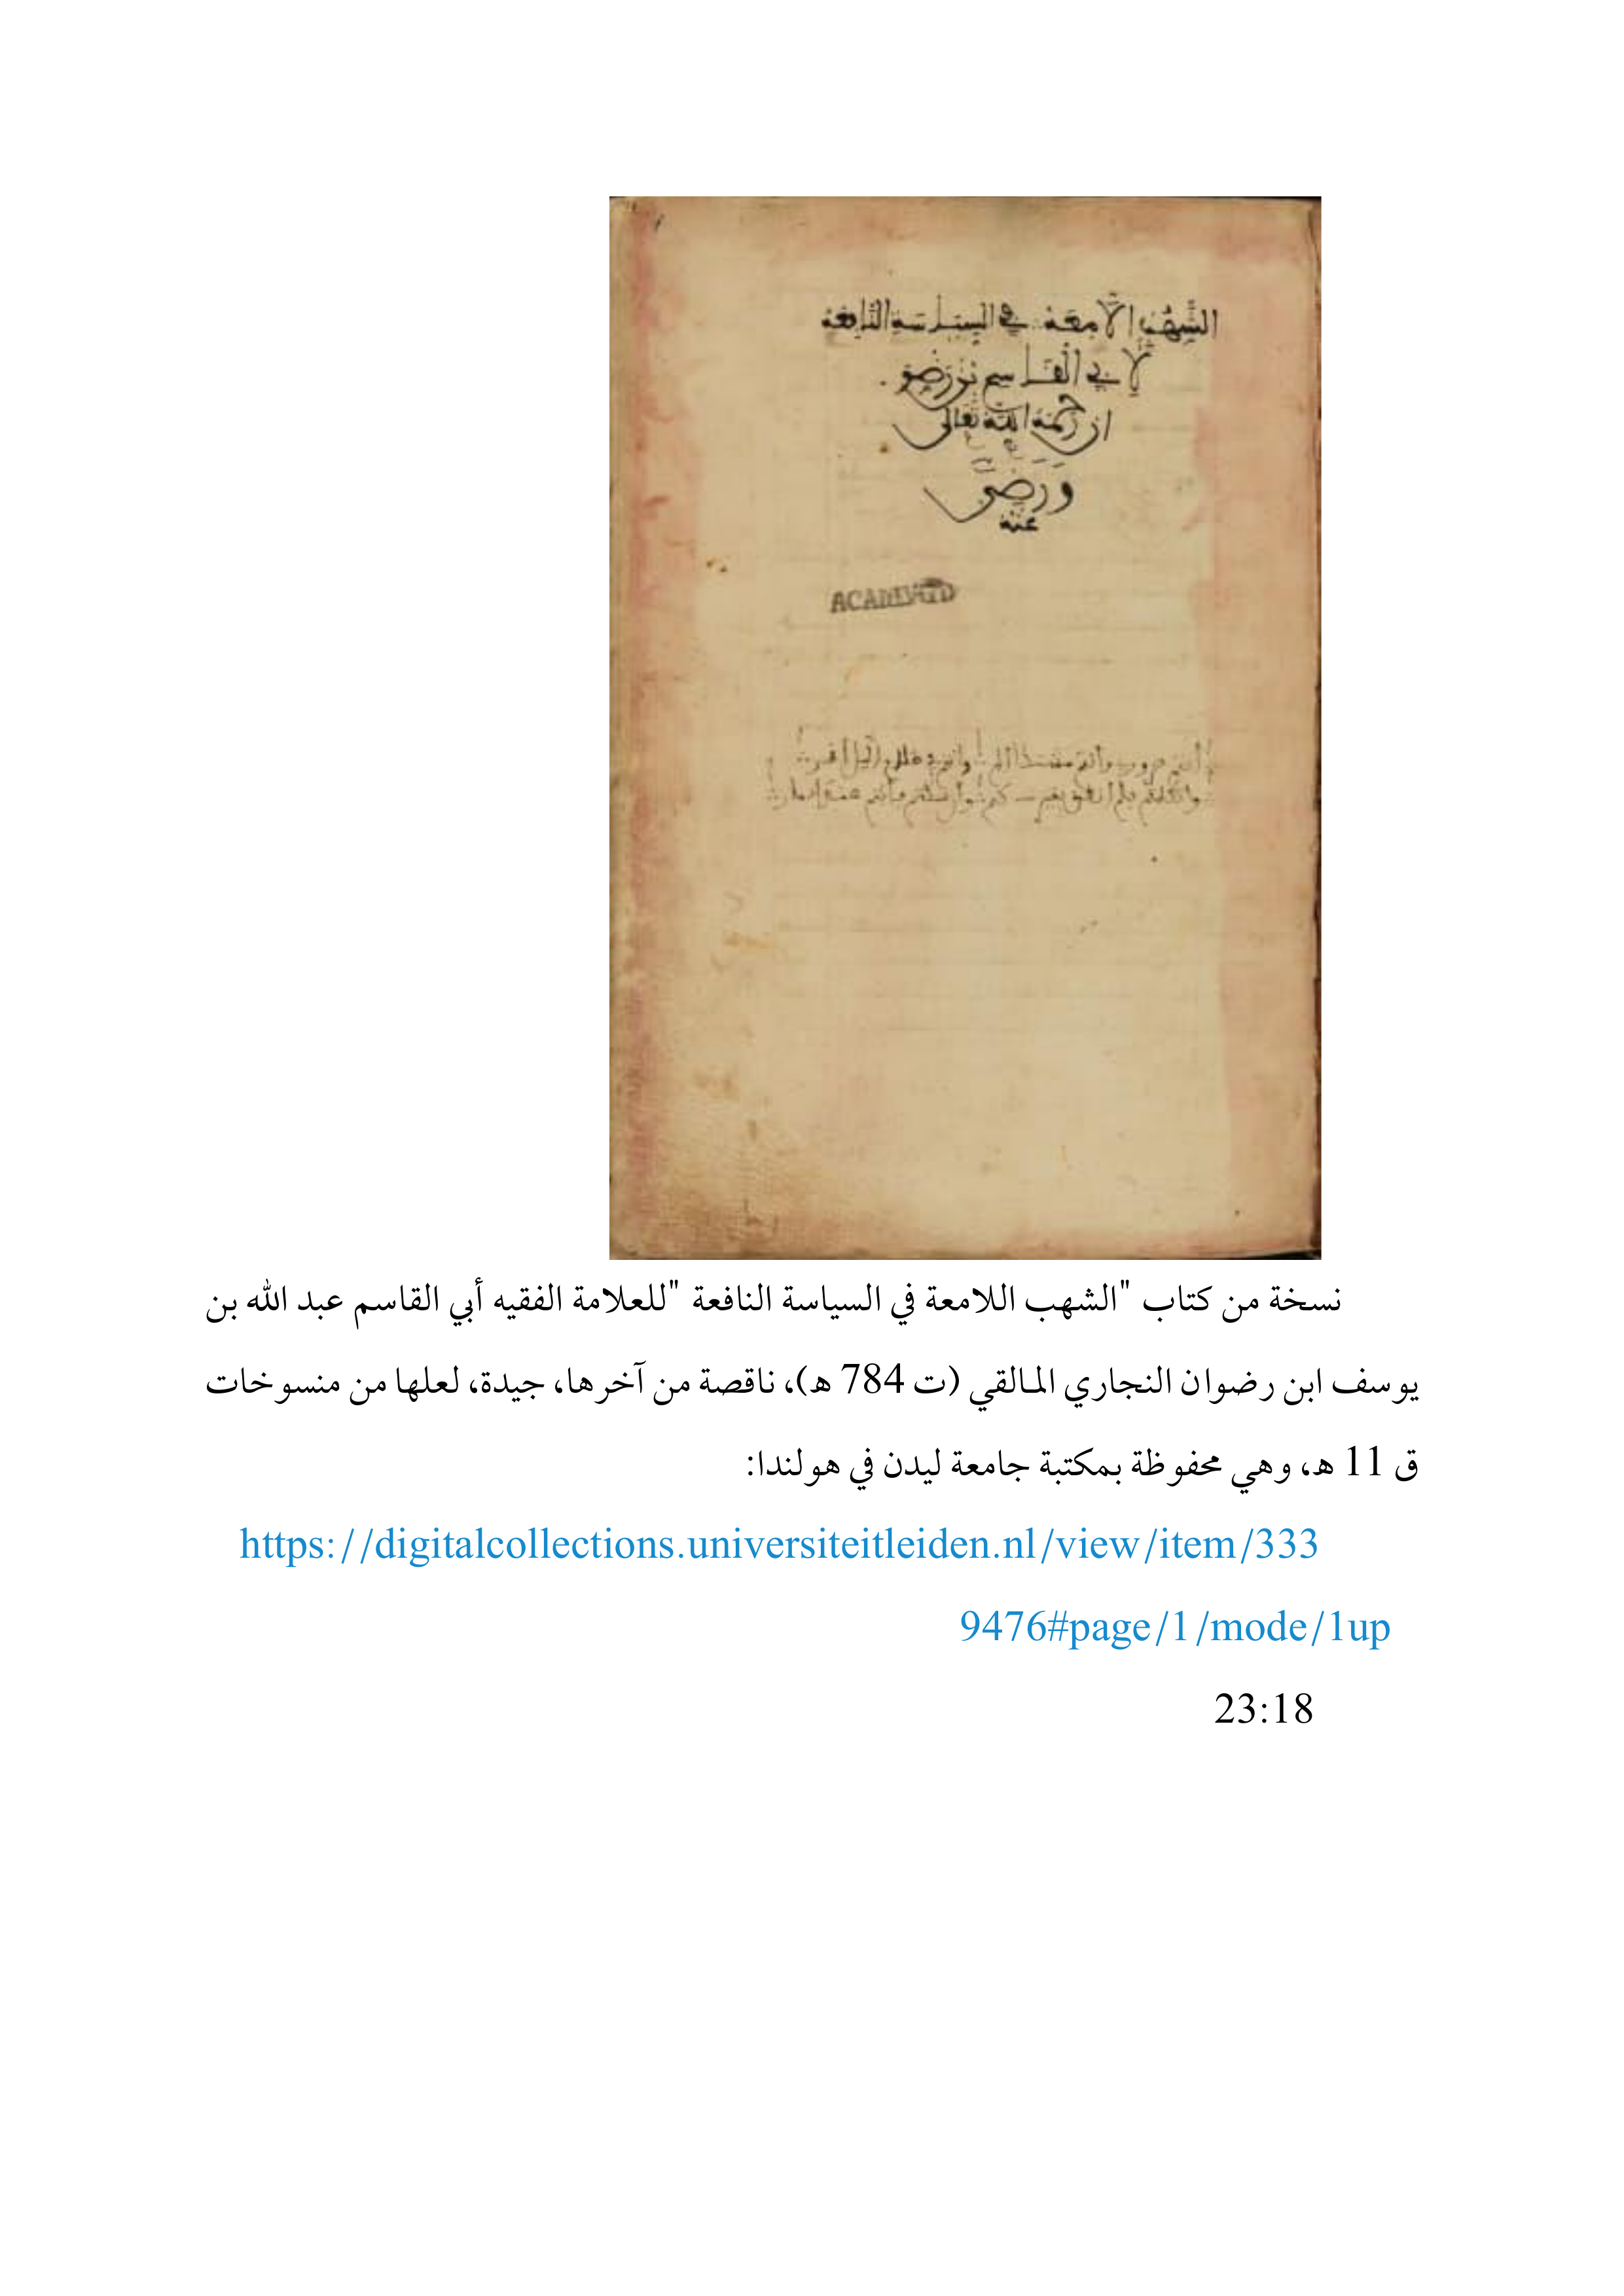 الشهب الامعة في السياسة النافعة
لابي القاسم بن رضو
ان رحمة الله تعالى
ورضى
عنه
نسخة من كتاب "الشهب اللامعة في السياسة النافعة "للعلامة الفقيه أبي القاسم عبد الله بن
يوسف ابن رضوان النجاري المالقي (ت 784 هـ)، ناقصة من آخرها، جيدة، لعلها من منسوخات
ق 11 هـ، وهي محفوظة بمكتبة جامعة ليدن في هولندا:
https://digitalcollections.universiteitleiden.nl/view/item/333
9476#page/1/mode/1up
23:18